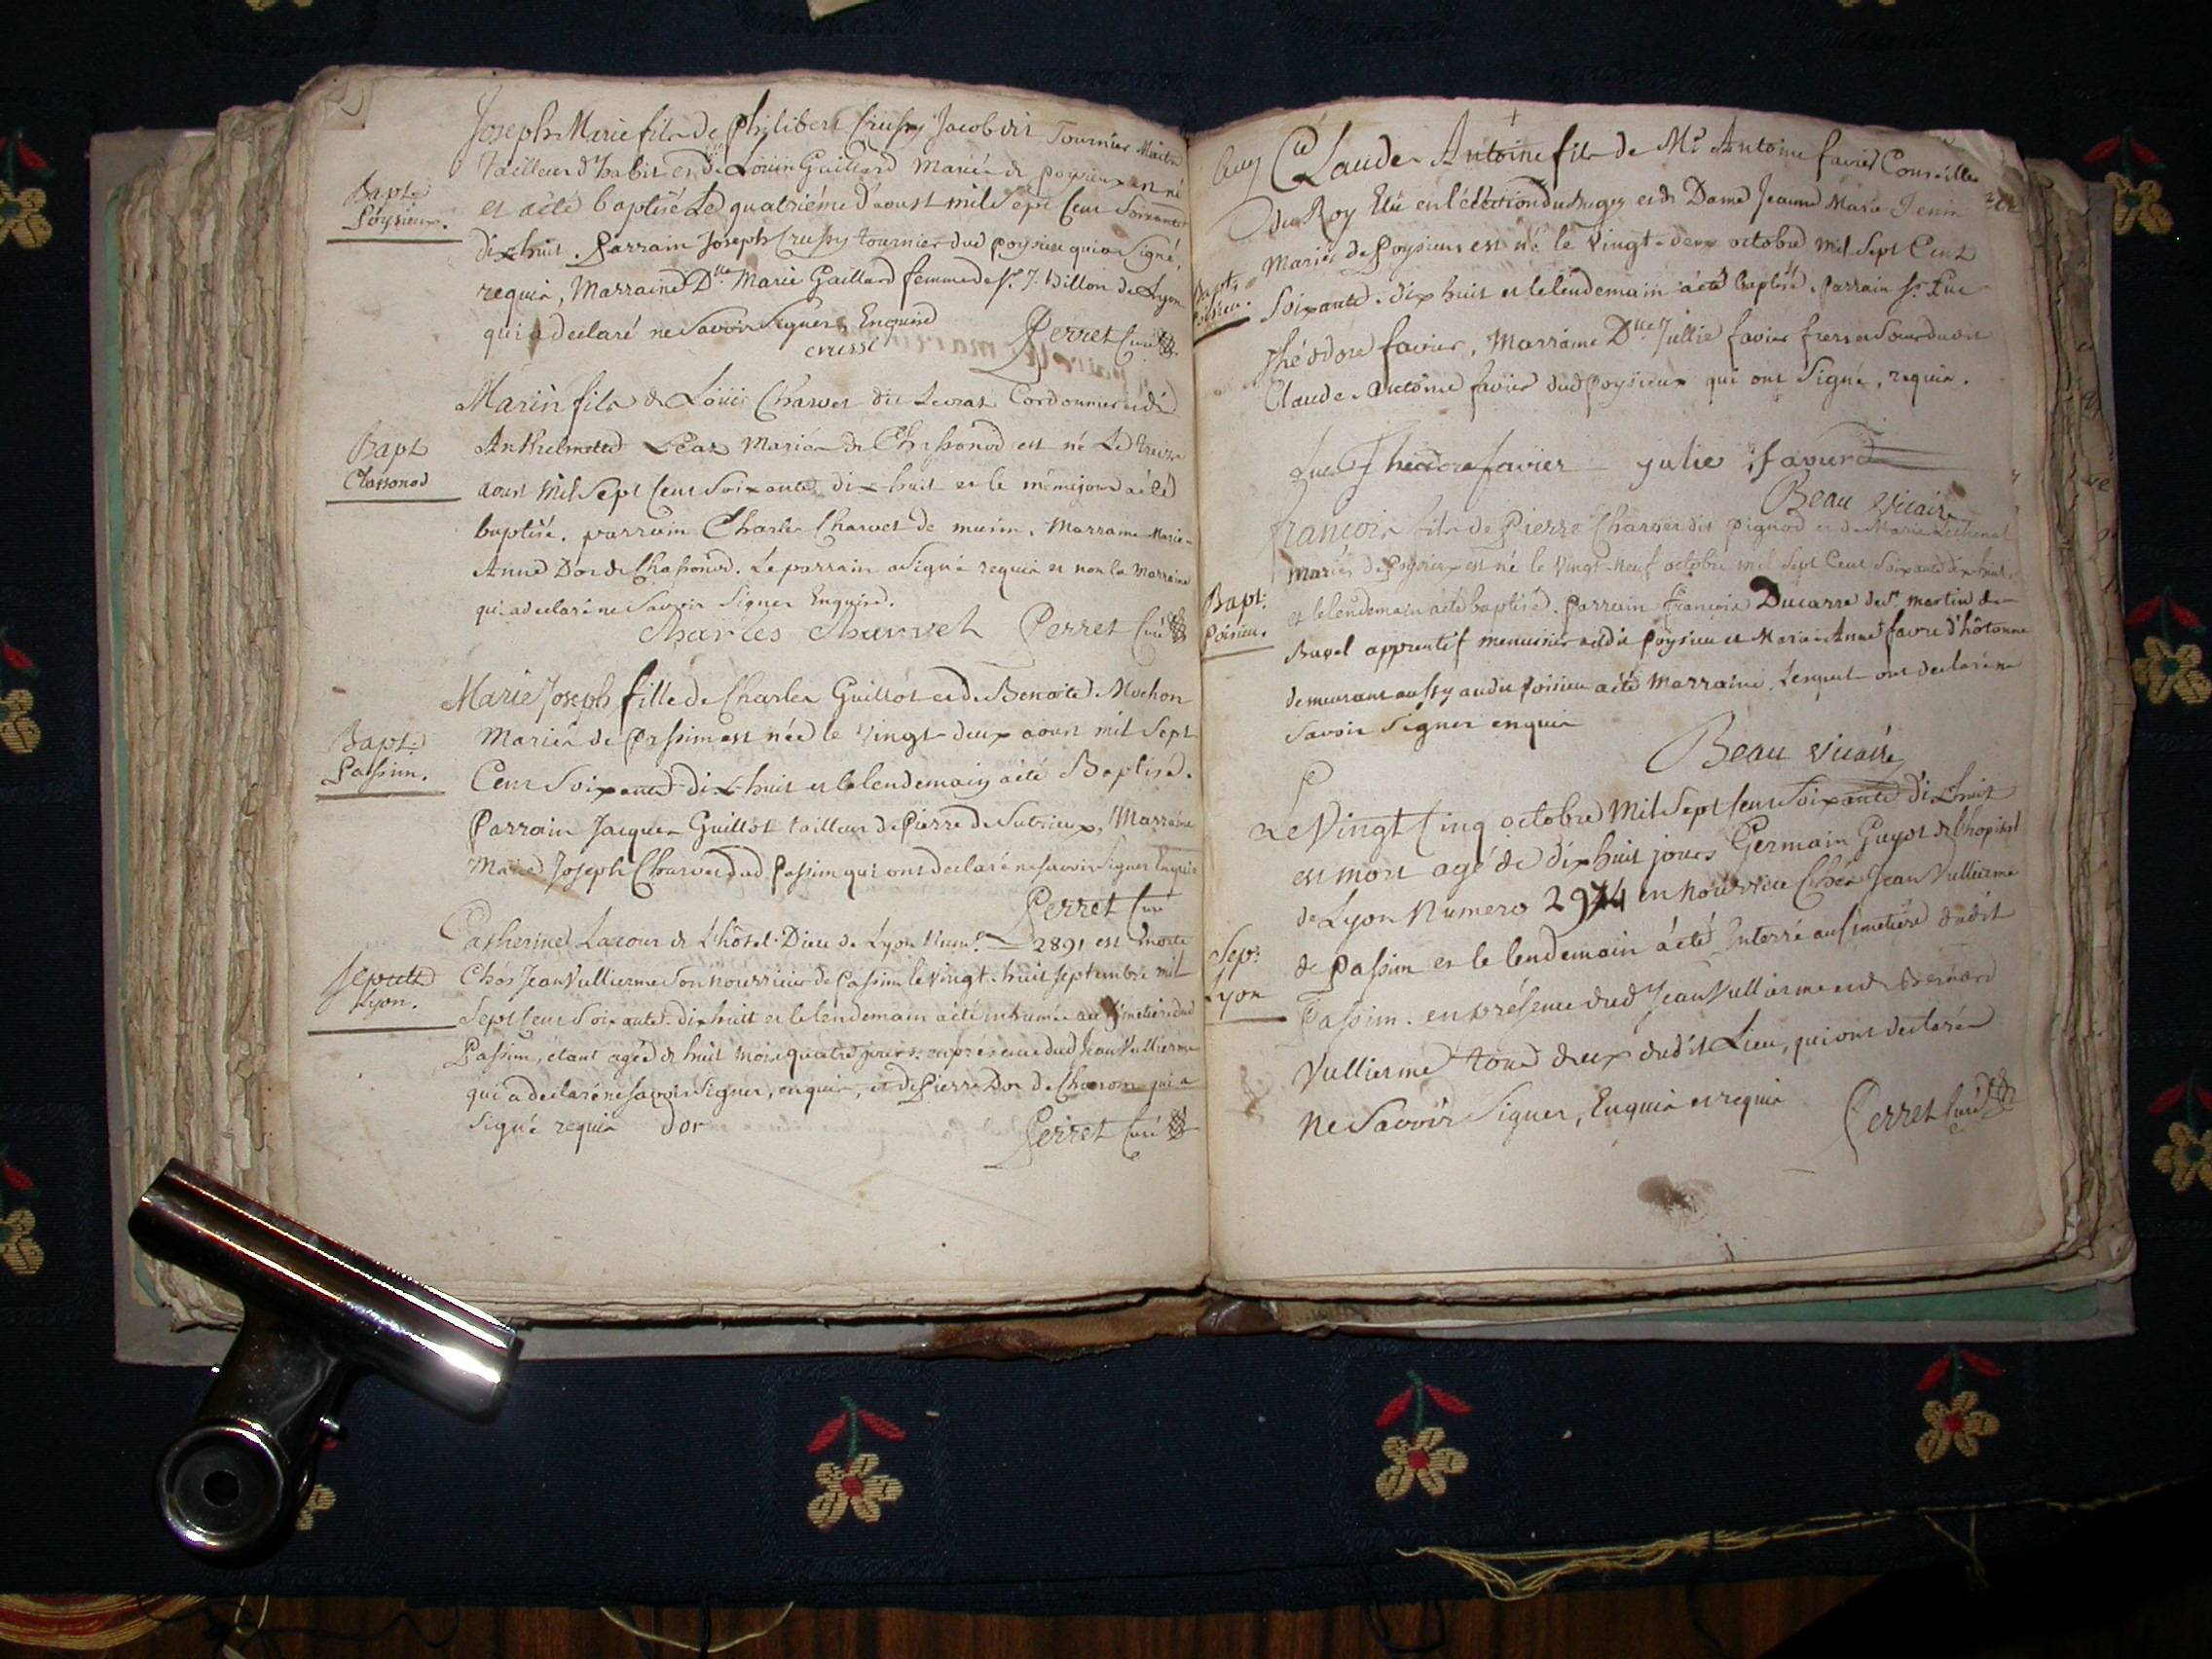 Joseph Marie fils de Philibert Crussy Jacob dit Tournier Maitre
tailleur d'habit et de Loüise Gaillard Mariés de poysieux est né
Bapt.
Poysieux.
et a été baptisé Le quatriéme d'aoust mil Sept Cent Soixante
dix huit. Parrain Joseph Crussy tournier dud poysieu qui a Signé,
requis, Marraine Dlle Marie Gaillard femme de Sr. J. Billon de Lyon
qui a declaré ne Savoir Signer, Enquise
crussi
Perret Curé
Marin fils de Loüis Charvet dit Levrat Cordonnier et de
Bapt
Chassonod
Anthelmette Mariés de Chassonod est né Le treize
aoust Mil Sept Cent Soixante dix huit et le même jour a été
baptisé. parrain Charles Charvet de musin. Marraine Marie
Anne Dor de Chassonod. Le parrain a Signé requis et non la Marraine
qui a declaré ne Savoir Signer Enquise.
Charles Charvet Perret Curé
Marie Joseph fille de Charles Guillot et de Benoite Mochon
Bapt.
Passim.
Mariés de Passim est née le Vingt deux aoust mil Sept
Cent Soixante dix-huit et le lendemain a été Baptisé.
Parrain Jacques Guillot tailleur de Pierre de Sutrieux, Marraine
Marie Joseph Charvet dud. Passim qui ont declaré ne savoir Signer Enquis
Perret Curé
Catherine Lacour de L'hôtel-Dieu de Lyon Numo. 2891 est morte
Sepult
Lyon.
Chés Jean Vullierme Son nourricier de Passim le Vingt-huit Septembre mil
Sept Cent Soixante-dix huit et le lendemain a été inhumée au Cimetière dud
Passim, étant agée de huit mois quatre jours. en présence dud Jean Vullierme
qui a declaré ne savoir Signer, enquis, et de Pierre Dor de qui a
Signé requis dor
Perret Curé
Claude Antoine fils de Mr. Antoine favier Conseiller
du Roy Elû en l'élection du Bugey et de Dame Jeanne Marie Jenin
Mariés de Poysieux est né le Vingt-deux octobre mil Sept Cent
Bapt.
Poisieu.
Soixante-dix huit et le lendemain a été baptisé. Parrain Sr. Luc
théodore favier, Marraine Dlle Jullie favier frere et Sœur dudit
Claude-antoine favier dud poysieux qui ont Signé, requis.
Luc Théodore favier julie favier
Beau vicaire
françois fils de Pierre Charvet dit pignod et de Marie
Mariés de Poysieux est né le Vingt-Neuf octobre mil Sept Cent Soixante dix-huit
Bapt.
Poisieu.
et le lendemain a été baptisé. Parrain françois Ducarre de St. martin de
Bavel apprentif menuisier audit Poysieu et Marie-Anne favre d'hôtonne
demeurant aussy audit Poisieu a été Marraine, Lesquels ont declaré ne
Savoir Signer enquis
Beau vicaire
Le Vingt Cinq octobre Mil Sept Cent Soixante dix huit
est mort agé de dix huit jours Germain Guyot de l'hopital
de Lyon Numero 2974 en nourrice Chés Jean Vullierme
Sep.
Lyon
de Passim et le lendemain a été Interré au Cimetière dudit
Passim. en présence dud Jean Vullierme et de Bernard
Vullierme tous deux dudit Lieu, qui ont declaré
ne Savoir Signer, Enquis et requis
Perret Curé